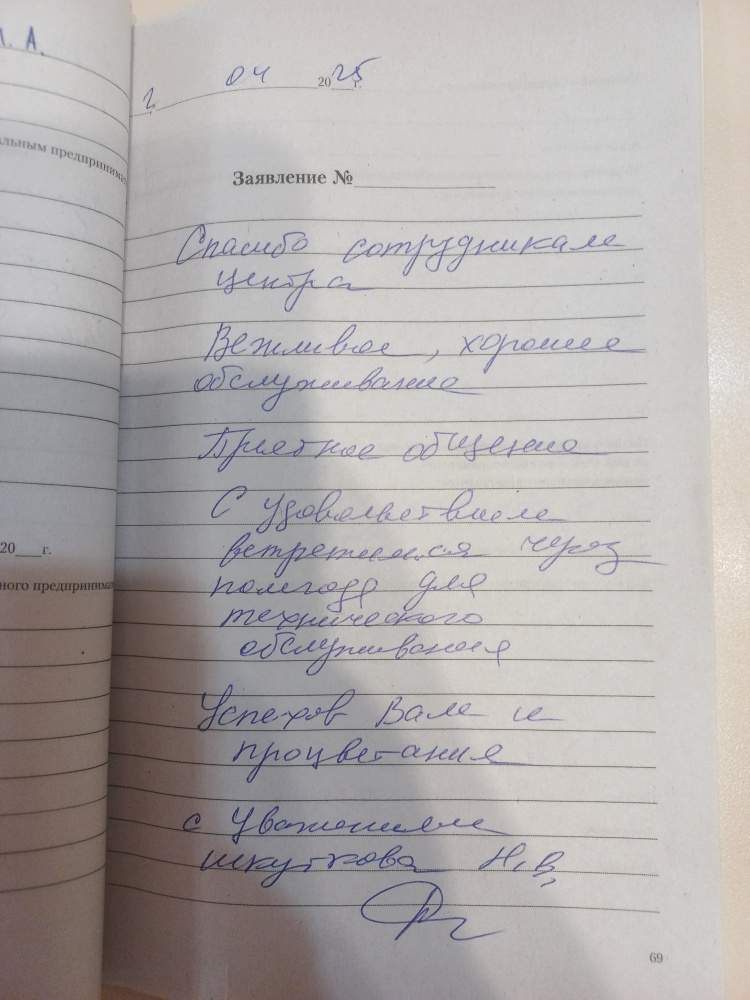 А.
2 04 2025 г.
альным предпринима
Заявление №
Спасибо сотрудникам
центра
Вежливое, хорошее
обслуживание
Приятное общение
С удовольствием
встретимся через
полгода для
технического
обслуживания
20 г.
ного предпринимат
Успехов Вам и
процветания
с уважением
Шкуткова Н.В.
69